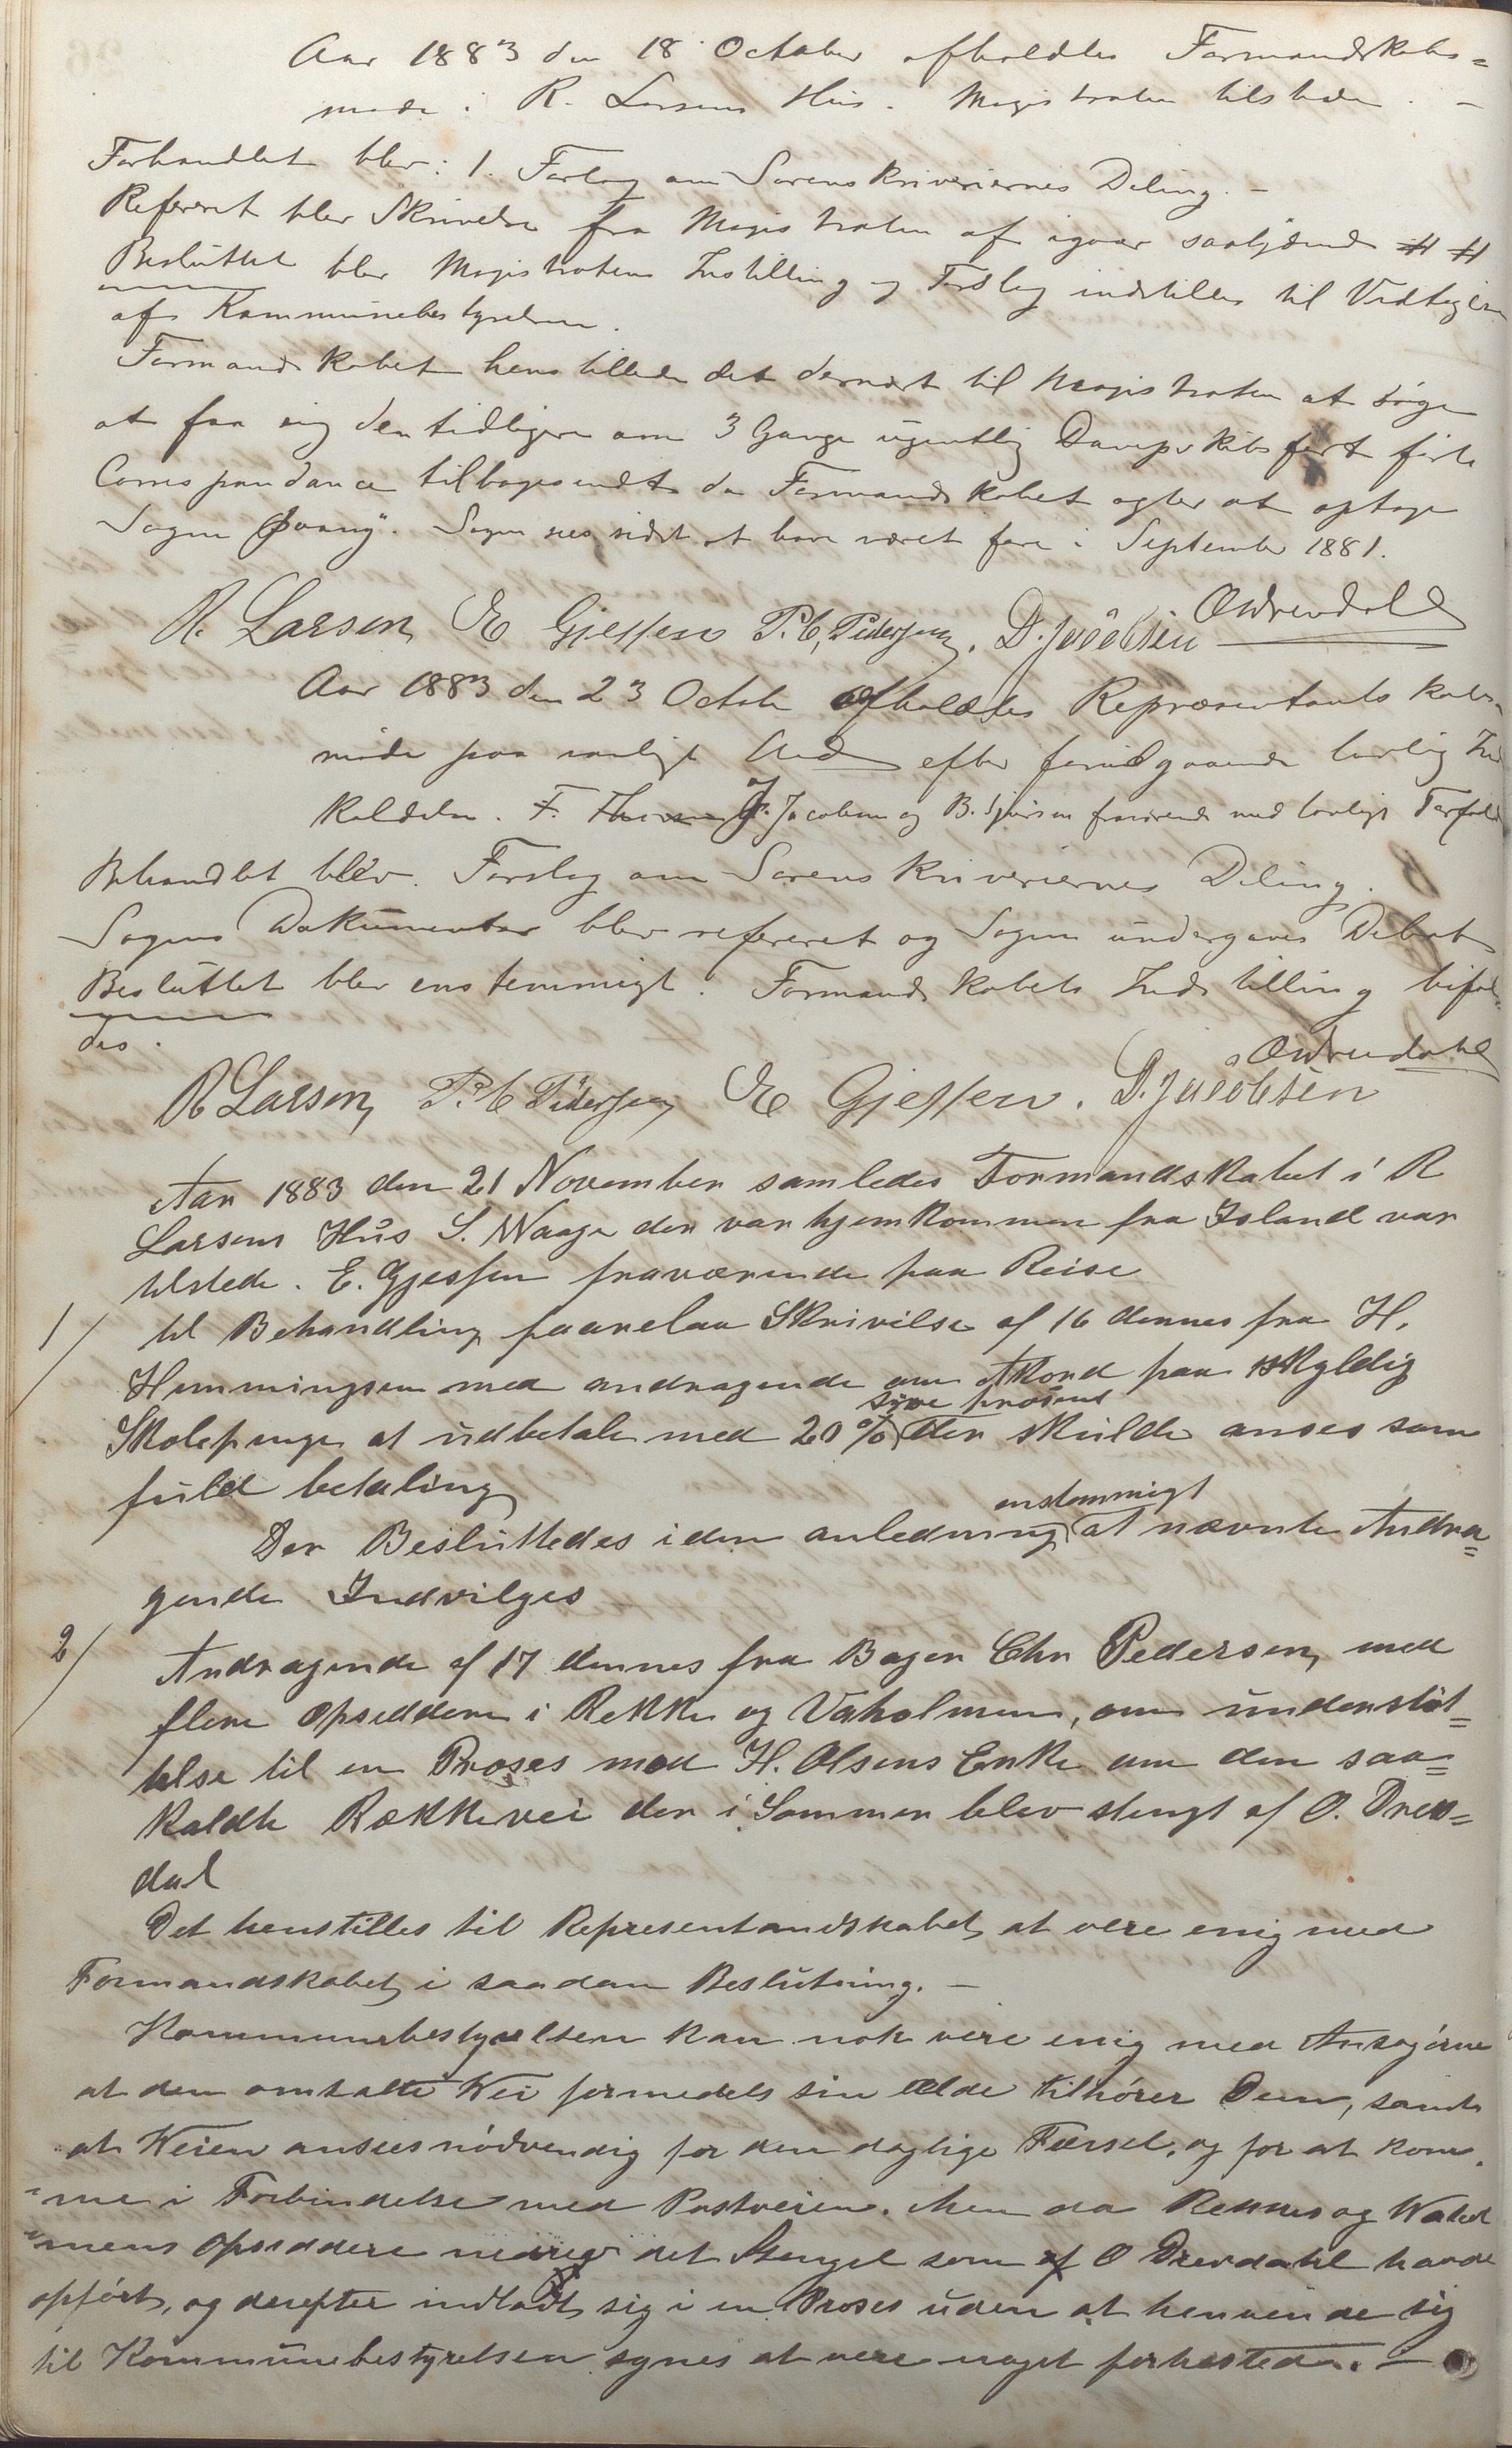 Aar 1883 den 18 October afholdtes Formandskabs=
møde i R. Larsens Hus. Magistraten tilstede. –
Forhandlet blev: 1. Forslag om Sorenskriveriernes Deling. –
Refereret blev Skrivelse fra Magistraten af igaar saalydende # #
Besluttet blev Magistratens Indstilling og Forslag indstilles til Vedtagelse
af Kommunebestyrelsen.
Formandskabet henstillede det dernæst til Magistraten at søge
at faa sig den tidligere om 3 Gange ugentlig Dampskibsfart førte
Correspondance tilbagesendt da Formandskabet agter at optage
Sagen paany. Sagen sees sidst at have været fore i September 1881.
R. Larsen E Gjessen P. C. Pedersen. D. Jacobsen O Drevdahl
Aar 1883 den 23 Octobr afholdtes Repræsentantskabs=
møde paa vanligt Sted efter foregaaende lovlig Ind
kaldelse. F. J. Jacobsen og B. fraværende med lovligt Forfald
Behandlet blev. Forslag om Sorenskriveriernes Deling.
Sagens Dokumenter blev refereret og Sagen undergaves Debat
Besluttet blev enstemmigt: Formandskabets Indstilling bifal=
des.
R Larsen P. C Pedersen E Gjessen. D. Jacobsen O Drevdahl
Aar 1883 den 21 November samledes Formandskabet i R
Larsens Hus S. Waage der var hjemkommen fra Island var
tilstede. E. Gjessen fraværende paa Reise
1/ til Behandling foorelaa Skrivilse af 16 dennes fra H.
Hemmingsen med andragende om Akord paa skyldig
Skolepenge at udbetale med 20 % tyve prosent der skulde anses som
fuld betaling
Der Besluttedes i den anledning enstemmigt at nævnte Andra=
gende Indvilges
2/ Andragende af 17 dennes fra Bager Chr Pedersen, med
flere Opsiddere i Rekke og Vaholmen, om understøt=
telse til en Proses med H. Olsens Enke om den saa=
kaldte Rækkevei der i Sommer blev stengt af O. Drev=
dal
Det henstilles til Representandskabet at vere enig med
Formandskabet i saadan Beslutning. –
Kommunebestyrelsen kan nok vere enig med Ansøgerne
at den omtalte Vei formedels sin elde tilhører Dem, samt
at Veien ansees nødvendig for den daglige Færsel, og for at kom=
=me i Forbindelse med Postveien. Men da Rekkes og Wahol
=mens Opsiddere nedrev det Stengsel som af O Drevdahl havde
opført, og derefter indladt sig i en Proses uden at henvende sig
til Kommunebestyrelsen synes at vere noget forhastede. –